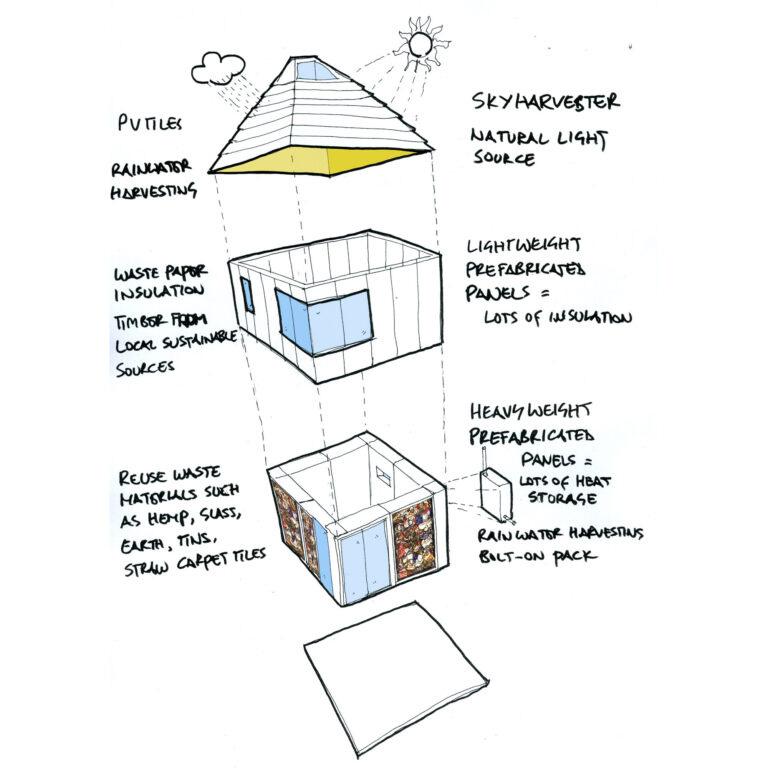 PV TILES
RAINWATER
HARVESTING
SKYHARVESTER
NATURAL LIGHT
SOURCE
WASTE PAPER
INSULATION
TIMBER FROM
LOCAL SUSTAINABLE
SOURCES
LIGHTWEIGHT
PREFABRICATED
PANELS =
LOTS OF INSULATION
REUSE WASTE
MATERIALS SUCH
AS HEMP, GLASS,
EARTH, TINS,
STRAW CARPET TILES
HEAVYWEIGHT
PREFABRICATED
PANELS =
LOTS OF HEAT
STORAGE
RAINWATER HARVESTING
BOLT-ON PACK